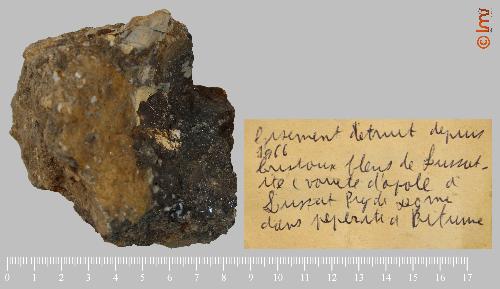 Gisement détruit depuis
1966
Cristaux bleus de Lussat-
ite (variété d'opale à
Lussat Puy de Dôme
dans pépérite à Bitume
0 1 2 3 4 5 6 7 8 9 10 11 12 13 14 15 16 17
© lmj